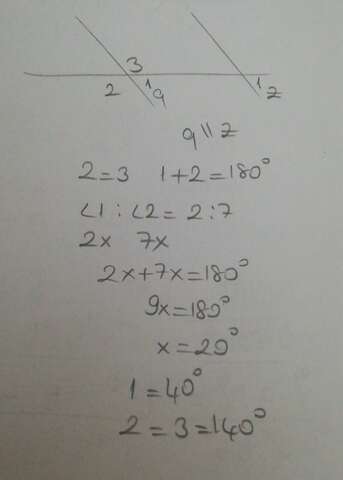 3
2 1 a 1 z
a || z
2 = 3 1 + 2 = 180°
∠1 : ∠2 = 2 : 7
2x 7x
2x + 7x = 180°
9x = 180°
x = 20°
1 = 40°
2 = 3 = 140°